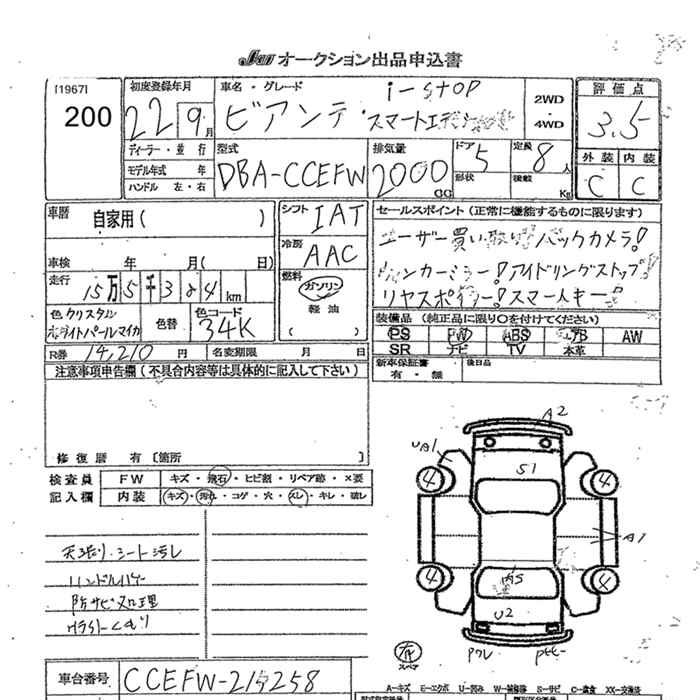 オークション出品申込書
[1967]
200
初度登録年月
22 9月
車名・グレード
i-STOP
ビアンテ スマートエディ
2WD
4WD
評価点
3.5
ディーラー・並行
モデル年式 年
ハンドル 左・右
型式
DBA-CCEFW
排気量
2000 CC
ドア
5
形状
定員
8人
積載 Kg
外装 内装
C C
車歴
自家用( )
シフト
IAT
セールスポイント(正常に機能するものに限ります)
冷房
AAC
ユーザー買い取り!バックカメラ!
車検 年 月( 日)
アイドリングストップ!
リヤスポイラー!スマートキー!
走行
15万5千384km
燃料
ガソリン
軽油
( )
色 クリスタル
ホワイトパールマイカ
色替
色コード
34K
装備品(純正品に限り○を付けてください)
PS PW ABS エアB AW
SR ナビ TV 本革
R券 14,210円 名変期限 月 日
新車保証書
有・無
後日品
注意事項申告欄(不具合内容等は具体的に記入して下さい)
修復歴 有〔箇所 〕
検査員
記入欄
FW キズ・飛石・ヒビ割・リペア跡・×要
内装 キズ・汚れ・コゲ・穴・スレ・キレ・破レ
天張り・シート汚レ
防サビ処理
A2
UA1
S1
4
4
A1
4
4
U2
スペア
車台番号
CCEFW-215258
A-キズ E-エクボ U-凹み W-補修跡 S-サビ C-腐食 XX-交換済